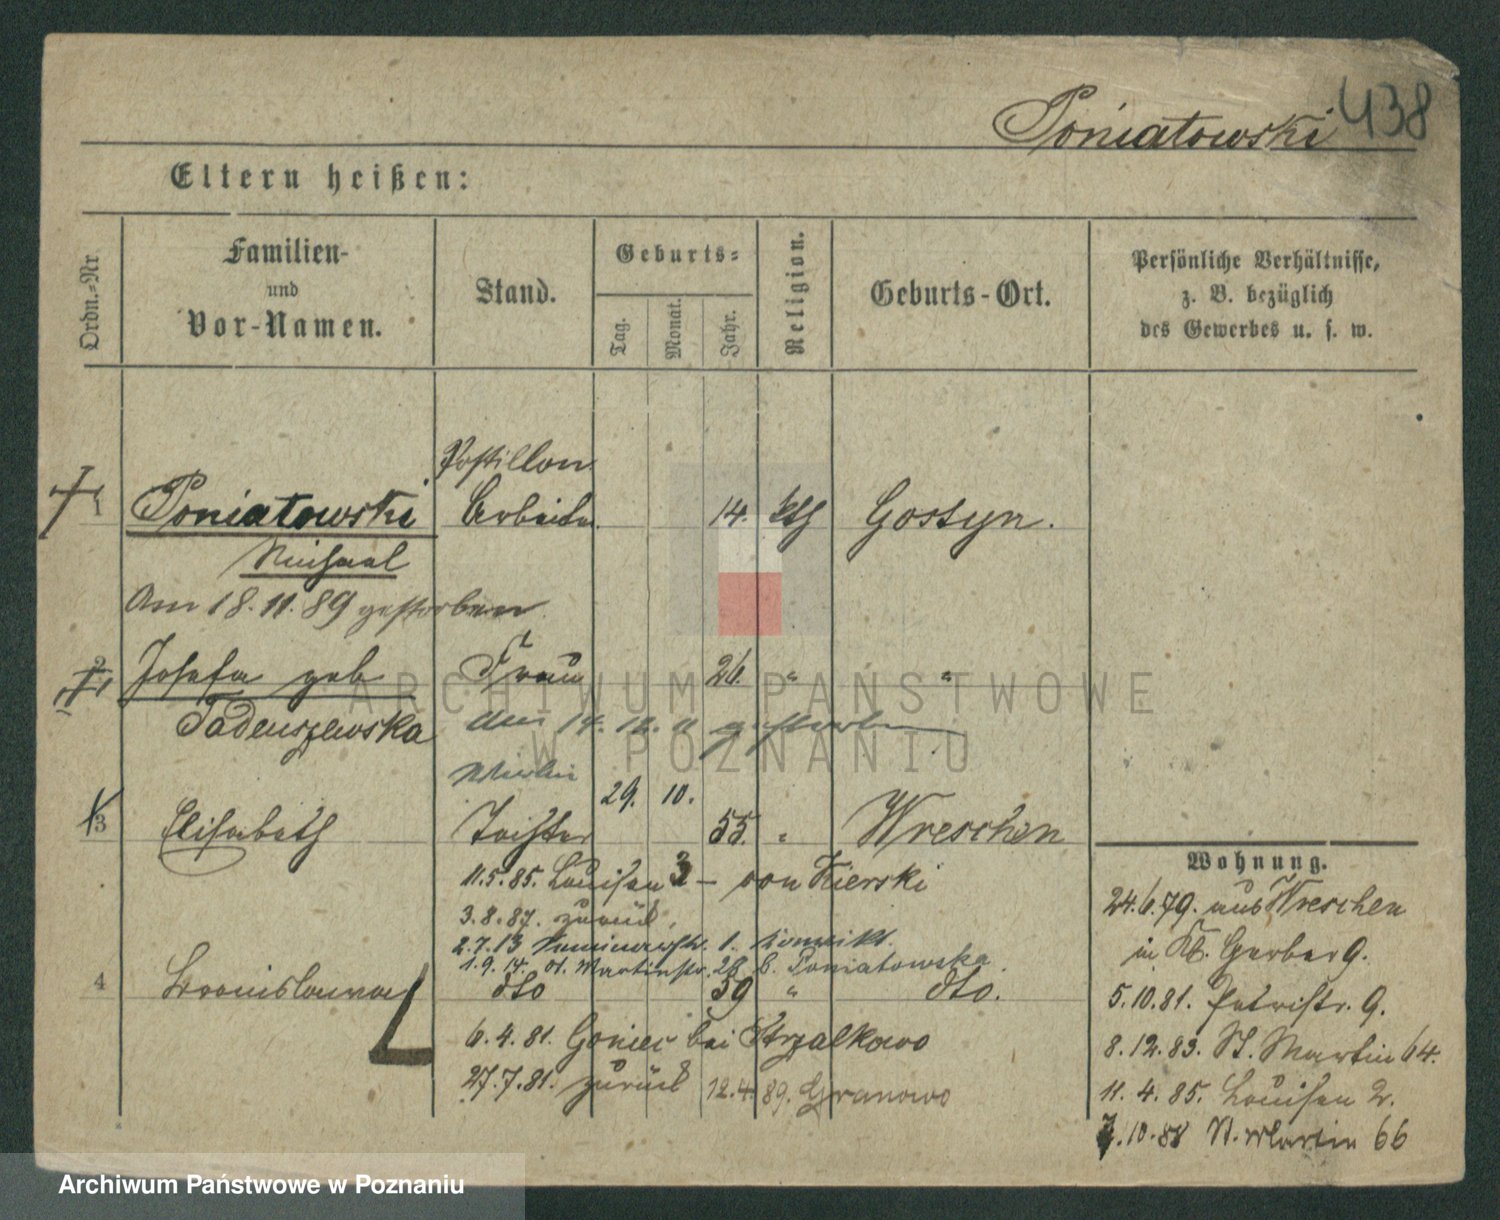 Poniatowski 438
Eltern heißen:
Ordn.-Nr.
Familien-
und
Vor-Namen.
Stand.
Geburts-
Tag.
Monat.
Jahr.
Religion.
Geburts-Ort.
Persönliche Verhältnisse,
z. B. bezüglich
des Gewerbes u. s. w.
Postillon
1 Poniatowski Arbeiter 14. kth Gostyn.
Michael
Am 18.11.89 gestorben
2 Josefa geb Frau 26. " "
Tadeuszewska am 14.12.11 gestorben
29. 10.
3 Elisabeth Tochter 55. " Wreschen
11.5.85. Louisen 3 - von Kierski
3.8.87. zurück.
2.7.13 1.
1.9.14. St. Martinstr. 28 b. Poniatowska.
4 Bronislawa dto 59 " dto.
6.4.81. Goniec bei Strzalkowo
27.7.81. zurück 12.4.89. Granowo
Wohnung.
24.6.79. aus Wreschen
in Kl. Gerber 9.
5.10.81. Petristr. 9.
8.12.83. St. Martin 64.
11.4.85. Louisen 2.
7.10.88 St. Martin 66
ARCHIWUM PAŃSTWOWE
W POZNANIU
Archiwum Państwowe w Poznaniu